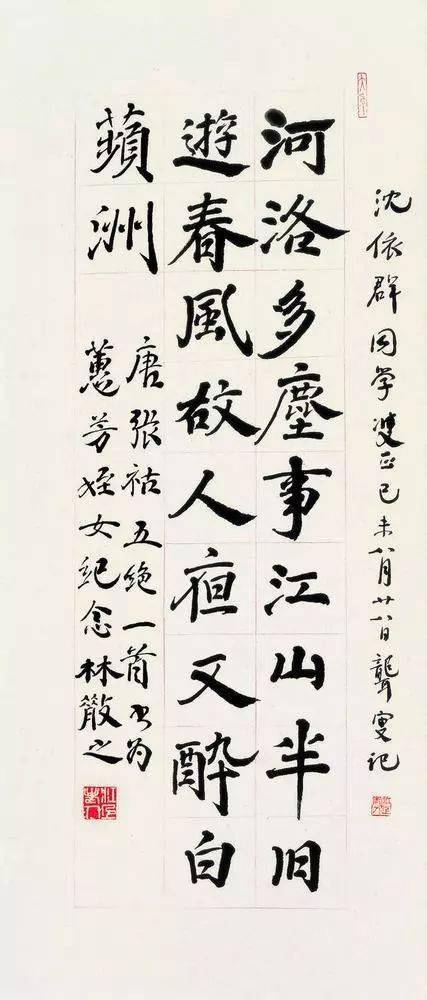 沈依群同学正己未八月廿八日聾叟记
河洛多塵事江山半旧
遊春風故人夜又醉白
蘋洲
唐張祜五绝一首书为
蕙芳姪女纪念林散之